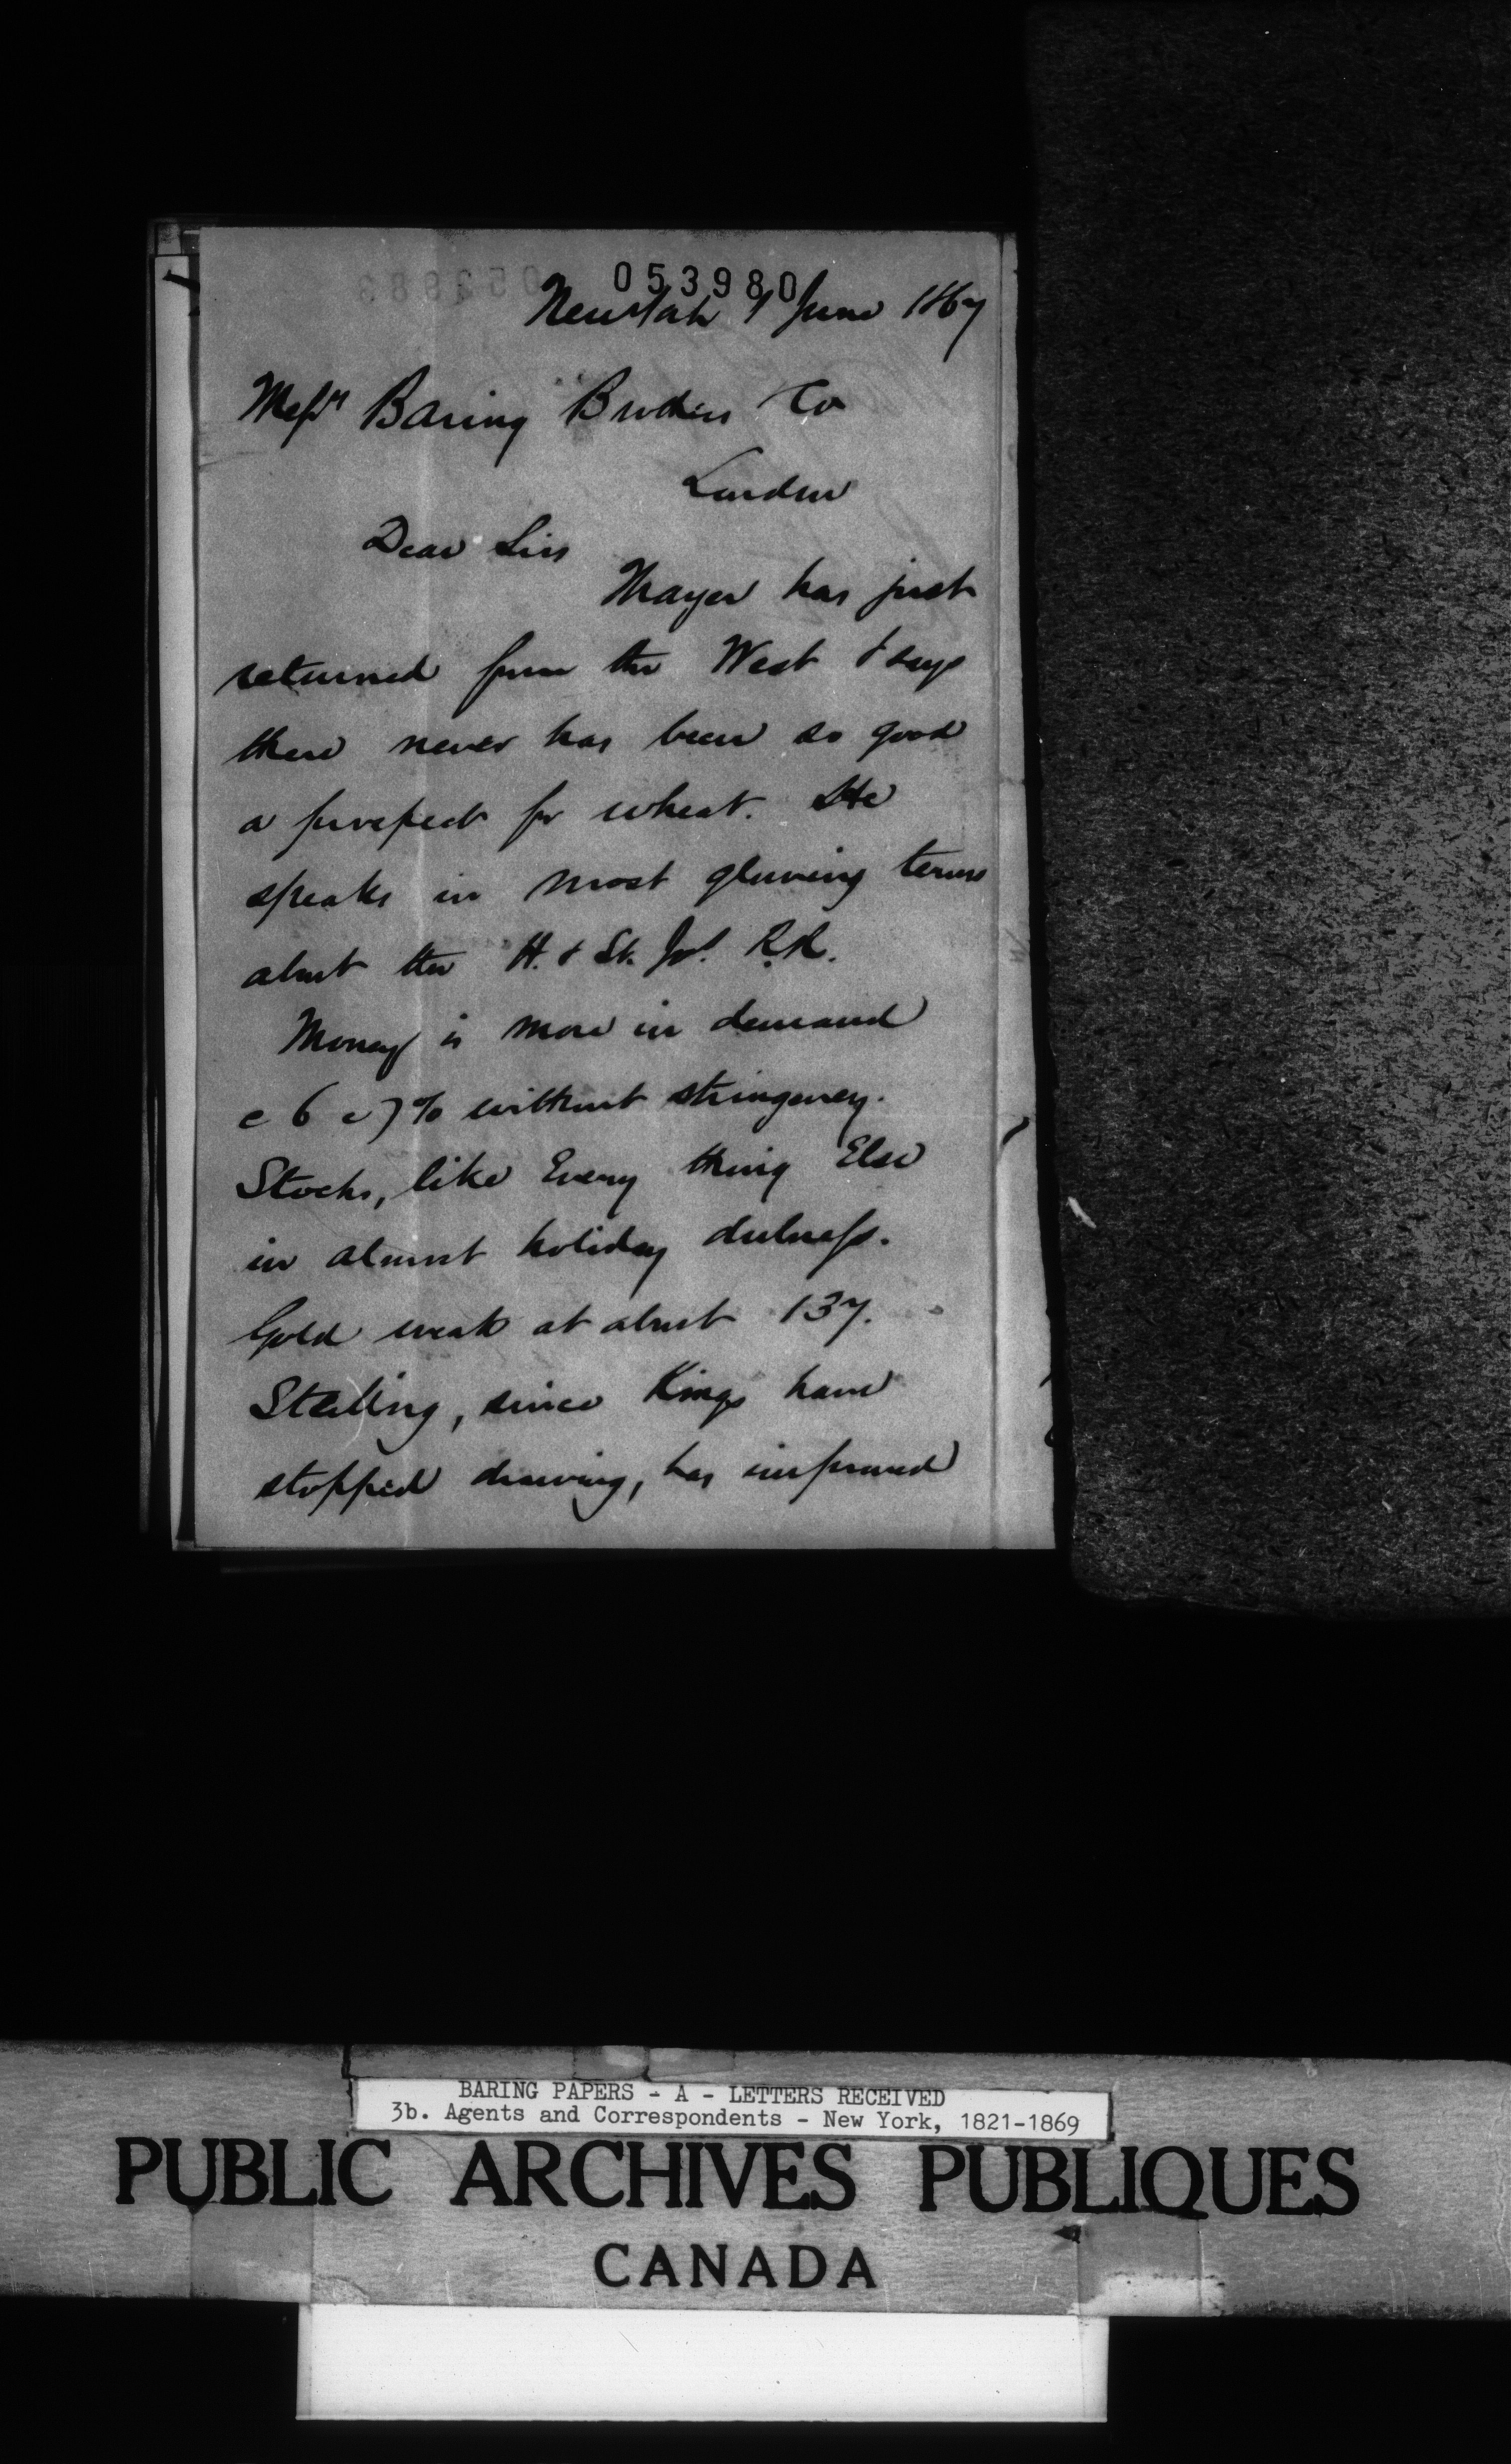 053980
New York 7 June 1867
Messrs Baring Brothers Co
London
Dear Sirs
Mayer has just
returned from the West & says
there never has been so good
a prospect for wheat. He
speaks in most glowing terms
about the H. & St. Jo. R.R.
Money is more in demand
@ 6 @ 7 % without stringency.
Stocks, like Every thing Else
in almost holiday dulness.
Gold weak at about 137.
Sterling, since Kings have
stopped drawing, has improved
BARING PAPERS - A - LETTERS RECEIVED
3b. Agents and Correspondents - New York, 1821-1869
PUBLIC ARCHIVES PUBLIQUES
CANADA